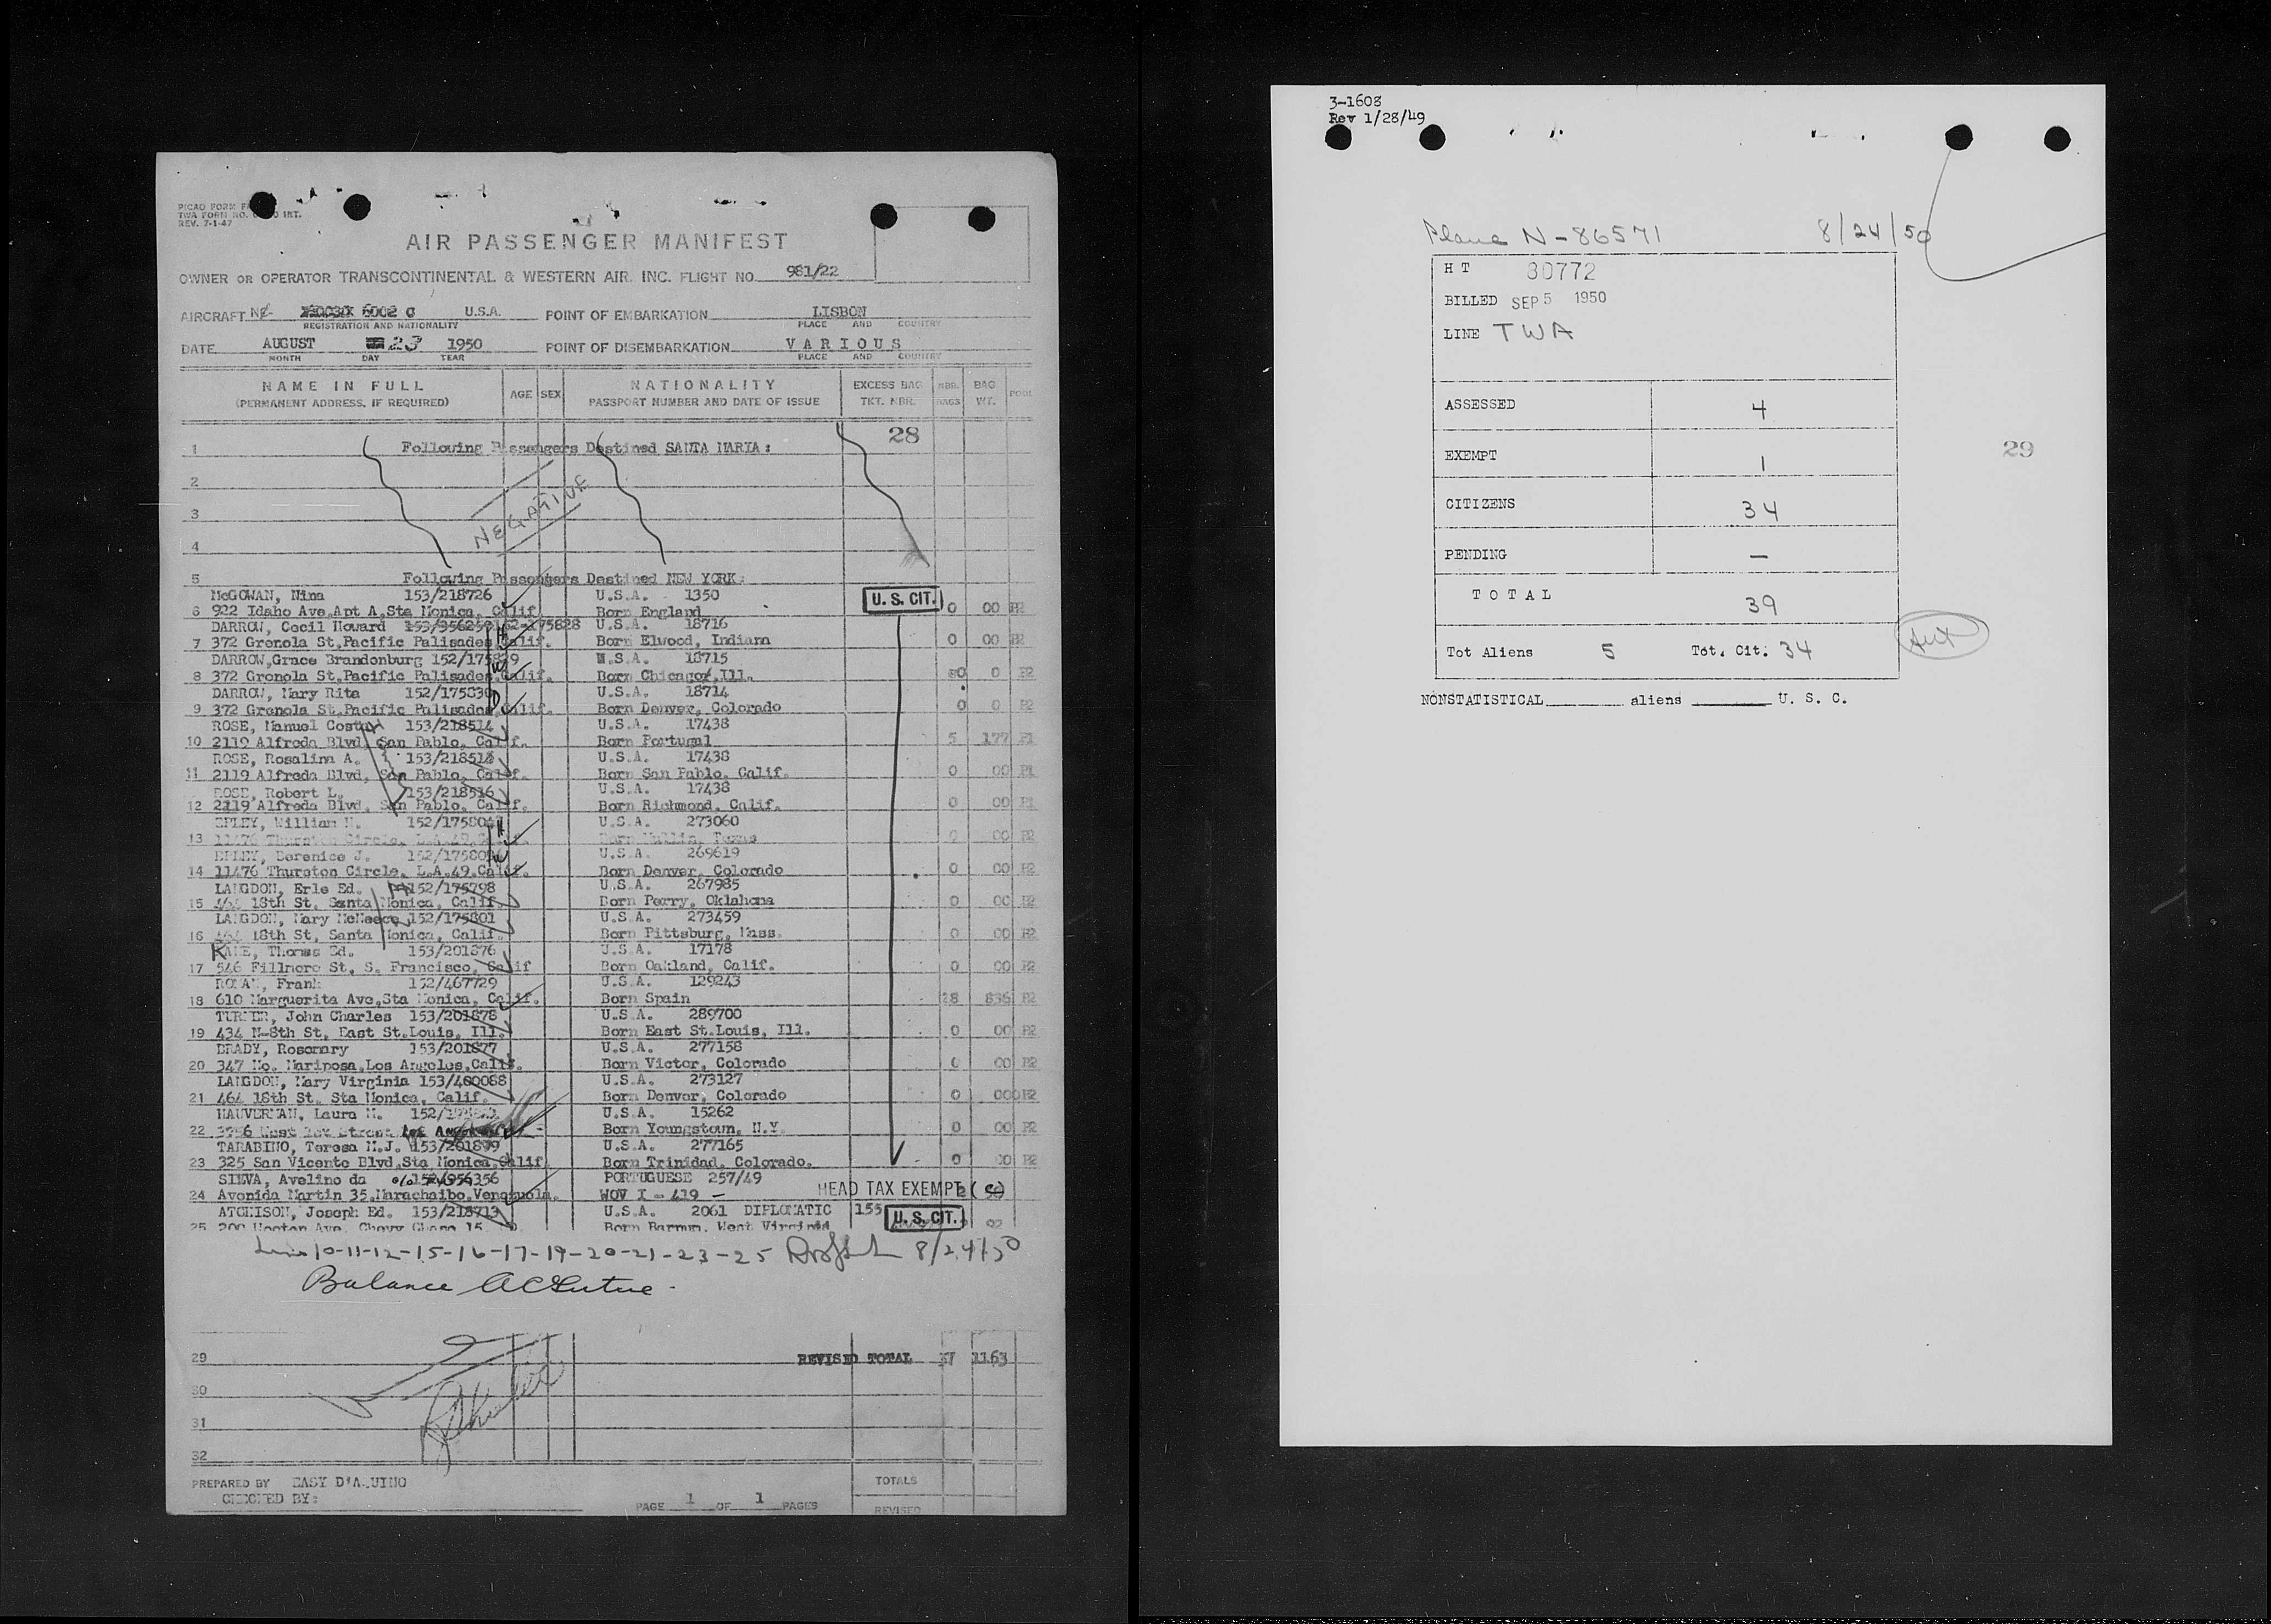 PICAO FORM
TWA FORM NO. INT.
REV. 7-1-47
AIR PASSENGER MANIFEST
OWNER OR OPERATOR TRANSCONTINENTAL & WESTERN AIR. INC. FLIGHT NO. 981/22
AIRCRAFT 6002 C U.S.A. POINT OF EMBARKATION LISBON
REGISTRATION AND NATIONALITY PLACE AND COUNTRY
DATE AUGUST 23 1950 POINT OF DISEMBARKATION VARIOUS
MONTH DAY YEAR PLACE AND COUNTRY
NAME IN FULL AGE SEX NATIONALITY EXCESS BAG NBR. BAG
(PERMANENT ADDRESS, IF REQUIRED) PASSPORT NUMBER AND DATE OF ISSUE TKT. NBR. BAGS WT.
28
1 Following Passengers Destined SANTA MARIA:
2
3 NEGATIVE
4
5 Following Passengers Destined NEW YORK:
McGOWAN, Nina 153/218726 U.S.A. 1350 U. S. CIT.
6 922 Idaho Ave.Apt A,Sta Monica, Calif Born England 0 00
DARROW, Cecil Howard 152-175828 U.S.A. 18716
7 372 Grenola St,Pacific Palisades Calif. Born Elwood, Indiana 0 00
DARROW,Grace Brandonburg 152/175829 U.S.A. 18715
8 372 Gronola St,Pacific Palisades,Calif. Born Chicago,Ill. 0 0
DARROW, Mary Rita 152/175830 U.S.A. 18714
9 372 Granola St,Pacific Palisades,Calif. Born Denver, Colorado 0 0
ROSE, Manuel Costa 153/218514 U.S.A. 17438
10 2119 Alfreda Blvd, San Pablo, Calif. Born Portugal 5 177
ROSE, Rosalina A. 153/218515 U.S.A. 17438
11 2119 Alfreda Blvd, San Pablo, Calif. Born San Pablo, Calif. 0 00
ROSE, Robert L. 153/218516 U.S.A. 17438
12 2119 Alfreda Blvd, San Pablo, Calif. Born Richmond, Calif. 0 00
EPLEY, William H. U.S.A. 273060
13 Thurston Circle, Born Mullin, Texas 0 00
EPLEY, Berenice J. U.S.A. 269619
14 11476 Thurston Circle, L.A.49,Calif. Born Denver, Colorado 0 00
LANGDON, Erle Ed. 152/175798 U.S.A. 267985
15 464 18th St, Santa Monica, Calif Born Perry, Oklahoma 0 00
LANGDON, Mary McNeece 152/175801 U.S.A. 273459
16 464 18th St, Santa Monica, Calif. Born Pittsburg, Mass. 0 00
KANE, Thomas Ed. 153/201876 U.S.A. 17178
17 546 Fillmore St, S. Francisco, Calif Born Oakland, Calif. 0 00
ROMAN, Frank 152/467729 U.S.A. 129243
18 610 Marguerita Ave,Sta Monica, Calif. Born Spain 28 836
TURNER, John Charles 153/201878 U.S.A. 289700
19 434 N-8th St, East St.Louis, Ill. Born East St.Louis, Ill. 0 00
BRADY, Rosemary 153/201877 U.S.A. 277158
20 347 No. Mariposa,Los Angeles,Calif. Born Victor, Colorado 0 00
LANGDON, Mary Virginia 153/480088 U.S.A. 273127
21 464 18th St. Sta Monica, Calif. Born Denver, Colorado 0 00
HAUVERMAN, Laura M. U.S.A. 15262
22 Los Angeles Born Youngstown, N.Y. 0 00
TARABINO, Teresa M.J. 153/201899 U.S.A. 277165
23 325 San Vicente Blvd,Sta Monica,Calif Born Trinidad, Colorado. 0 00
SILVA, Avelino da PORTUGUESE 257/49
24 Avenida Martin 35,Marachaibo,Venezuela. WOV I - 419 - HEAD TAX EXEMPT
ATCHISON, Joseph Ed. 153/218713 U.S.A. 2061 DIPLOMATIC 155 U. S. CIT.
25 200 Hooten Ave, Chevy Chase 15, Born Barnum, West Virginia 92
Lines 10-11-12-15-16-17-19-20-21-23-25 8/24/50
Balance
29 REVISED TOTAL 37 1163
30
31
32
PREPARED BY EASY D'AQUINO TOTALS
CHECKED BY: PAGE 1 OF 1 PAGES REVISED
3-1608
Rev 1/28/49
Plane N-86571 8/24/50
HT 80772
BILLED SEP 5 1950
LINE TWA
ASSESSED 4
EXEMPT 1
29
CITIZENS 34
PENDING —
TOTAL 39
Tot Aliens 5 Tot. Cit: 34
NONSTATISTICAL aliens U. S. C.